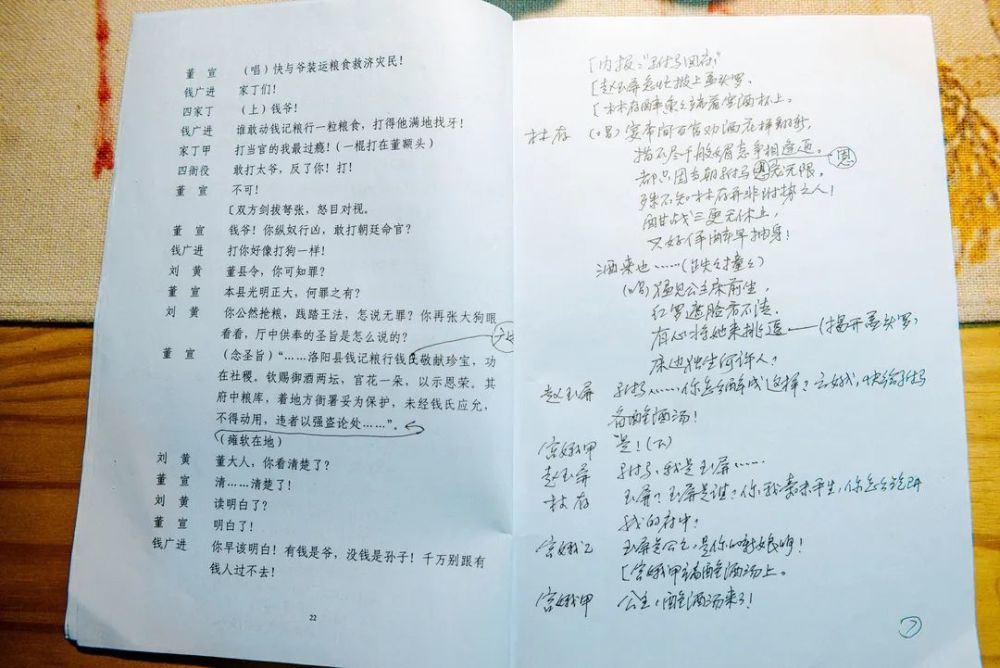 董　宣　（唱）快与爷装运粮食救济灾民！
钱广进　家丁们！
四家丁　（上）钱爷！
钱广进　谁敢动钱记粮行一粒粮食，打得他满地找牙！
家丁甲　打当官的我最过瘾！（一棍打在董额头）
四衙役　敢打太爷，反了你！打！
董　宣　不可！
〔双方剑拔弩张，怒目对视。
董　宣　钱爷！你纵奴行凶，敢打朝廷命官？
钱广进　打你好像打狗一样！
刘　黄　董县令，你可知罪？
董　宣　本县光明正大，何罪之有？
刘　黄　你公然抢粮，践踏王法，怎说无罪？你再张大狗眼
看看，厅中供奉的圣旨是怎么说的？
董　宣　（念圣旨）“……洛阳县钱记粮行钱氏敬献珍宝，功
在社稷。钦赐御酒两坛，官花一朵，以示恩荣。其
府中粮库，着地方衙署妥为保护，未经钱氏应允，
不得动用，违者以强盗论处……”。
（瘫软在地）
刘　黄　董大人，你看清楚了？
董　宣　清……清楚了！
刘　黄　读明白了？
董　宣　明白了！
钱广进　你早该明白！有钱是爷，没钱是孙子！千万别跟有
钱人过不去！
22
〔内报：“驸马回府”
〔赵玉屏急忙披上盖头罗。
〔杜存醉熏熏端着宫酒杯上。
杜存　（唱）宴本间百官劝酒花样翻新，
描不尽千般媚态争相逢迎。
都只因当朝驸马恩宠无限，
殊不知杜存并非附势之人！
酣战三更无休止，
又好佯醉早抽身！
酒来也……（跌跌撞撞）
（唱）猛见公主床前坐，
红罗遮脸看不清。
有心将她来挑逗——（揭开盖头罗）
床边独坐何许人？
赵玉屏　驸马……你怎么醉成这样？宫娥，快给驸马
备醒酒汤！
宫娥甲　是！（下）
赵玉屏　驸马，我是玉屏……
杜存　玉屏？玉屏是谁？你我素未平生，你怎么跑到
我的府中？
宫娥乙　玉屏是公主，是你的新娘啊！
〔宫娥甲端醒酒汤上。
宫娥甲　公主，醒酒汤来了！
7